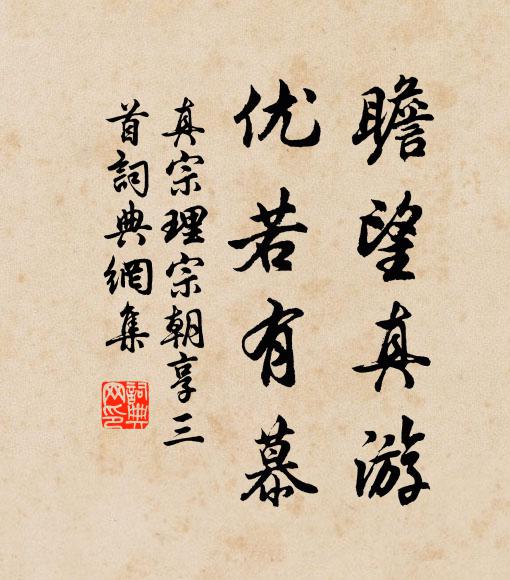 瞻望真游
优若有慕
真宗理宗朝享三
首詞典網集
詞典網印